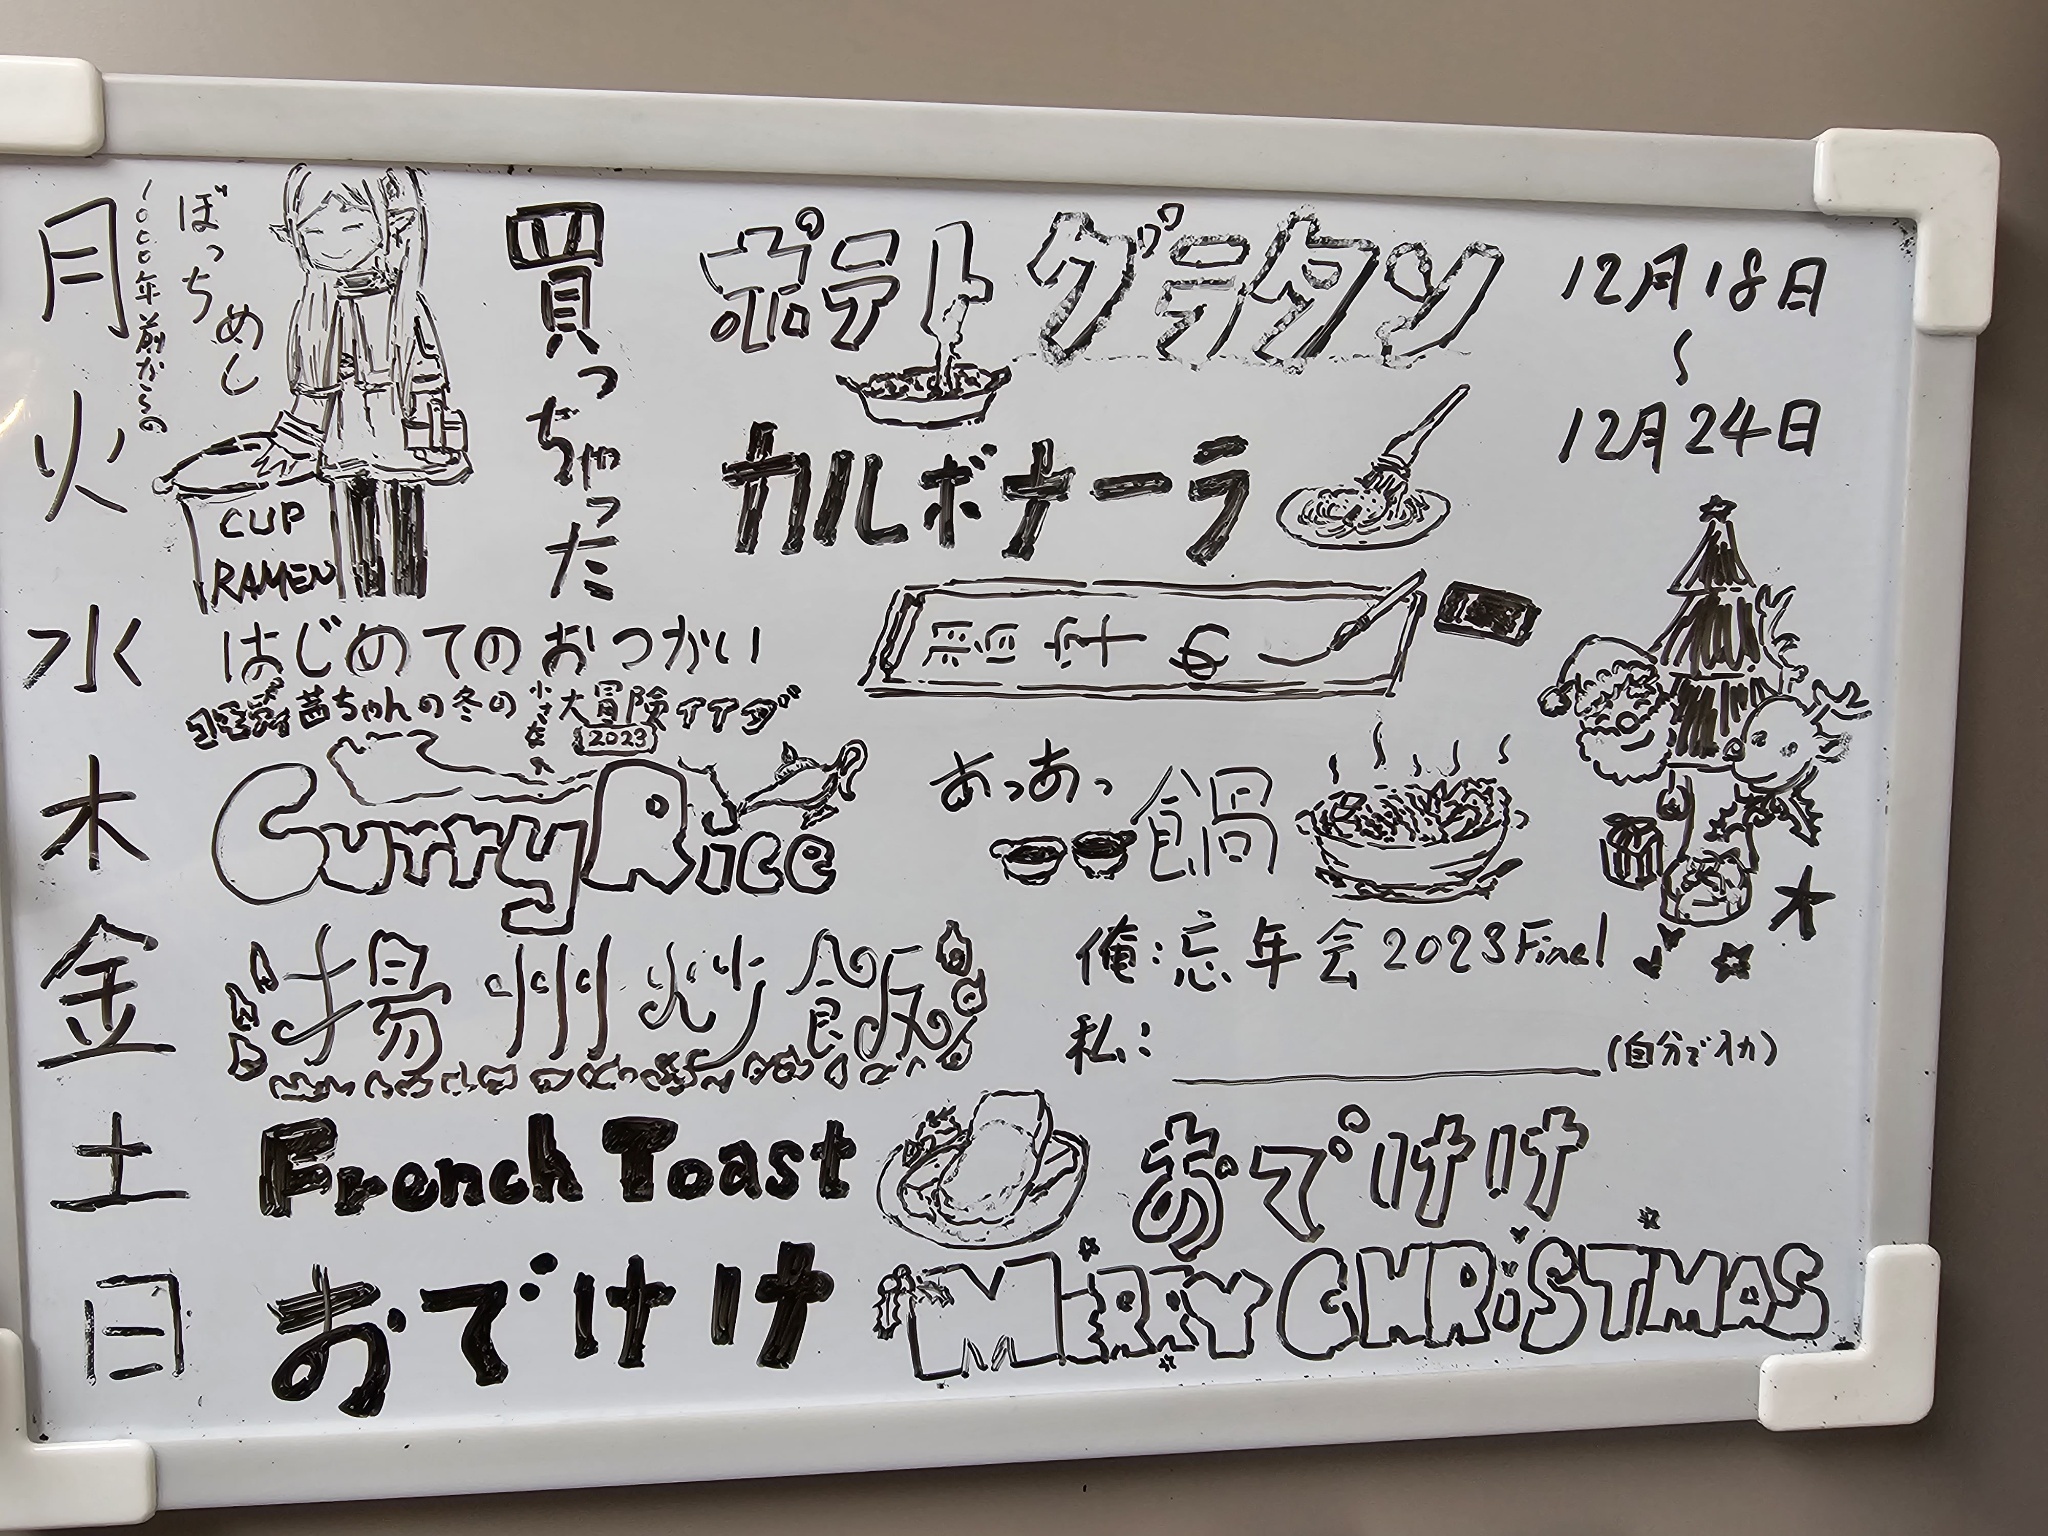 月
1000年前からの
ぼっち
めし
CUP
RAMEN
買っちゃった
ポテトグラタン
12月18日
〜
12月24日
火
カルボナーラ
水
はじめてのおつかい
茜ちゃんの冬の小さな大冒険
2023
木
Curry Rice
あっあっ
鍋
金
揚州炒飯
俺:忘年会2023Final
私:
(自分で入力)
土
French Toast
おでけけ
日
おでけけ
MERRY CHRiSTMAS